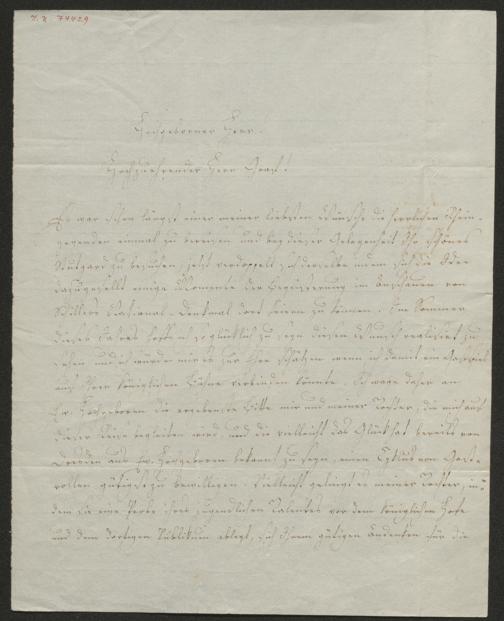 I. N. 74429
Hochgeborner Herr!
Hochzuehrender Herr Graf!
Es war schon längst einer meiner liebsten Wünsche die herrlichen Rhein-
gegenden einmal zu bereisen und bey dieser Gelegenheit Ihr schönes
Stuttgard zu besuchen, jetzt verdoppelt sich derselbe indem sich die Idee
dazugesellt einige Momente der Begeisterung im Anschauen von
Schillers National-Denkmal dort feiern zu können. Im Sommer
dieses Jahres hoffe ich so glücklich zu seyn diesen Wunsch realisirt zu
sehen und ich würde mir es zur Ehre schätzen wenn ich damit ein Gastspiel
auf Ihrer Königlichen Bühne verbinden könnte. Ich wage daher an
Ew. Hochgeboren die ergebenste Bitte mir und meiner Tochter, die mich auf
dieser Reise begleiten wird, und die vielleicht das Glück hat bereits von
Dresden aus Ew. Hochgeboren bekannt zu seyn, einen Cyklus von Gast-
rollen gütigst zu bewilligen. Vielleicht gelingt es meiner Tochter, in-
dem sie eine Probe ihres jugendlichen Talentes vor dem Königlichen Hofe
und dem dortigen Publikum ablegt, sich Ihrem gütigen Andenken für die